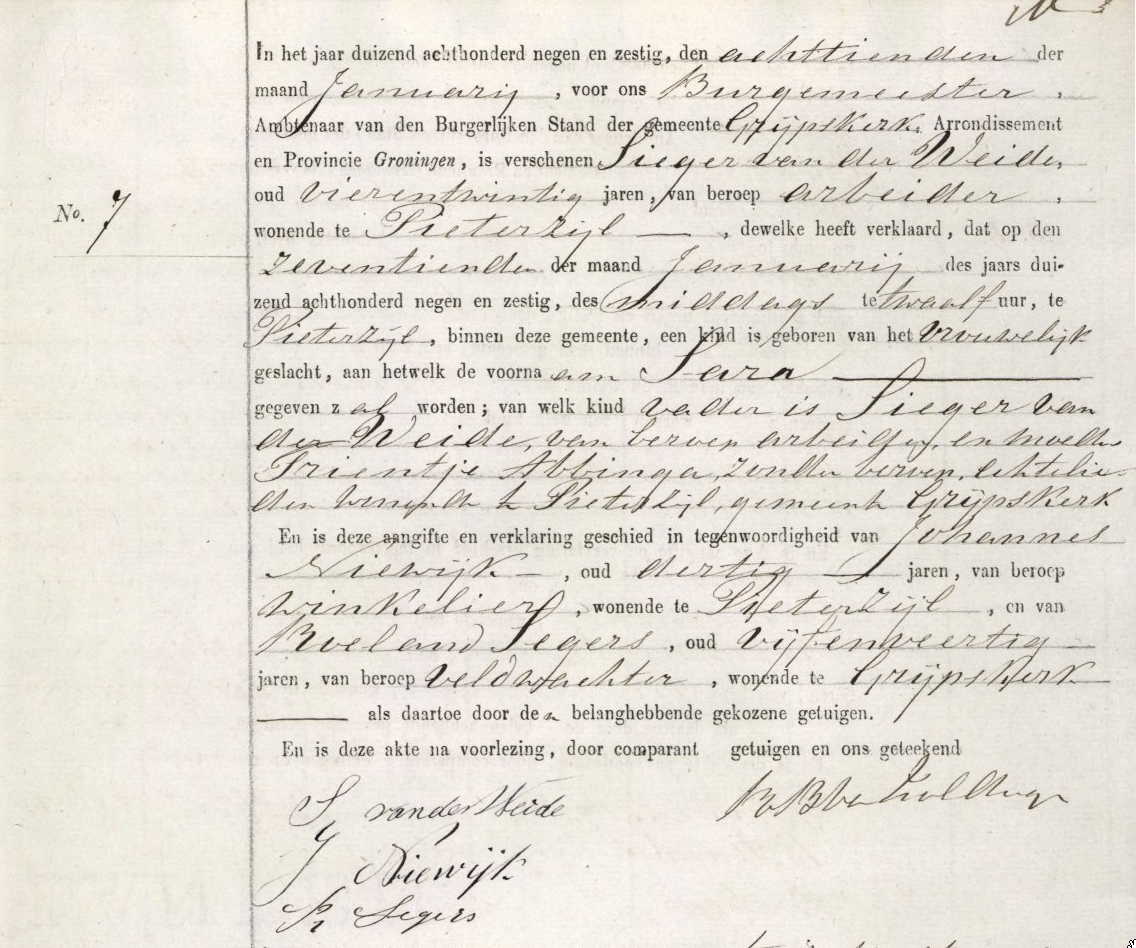 In het jaar duizend achthonderd negen en zestig, den achttienden der
maand Januarij , voor ons Burgemeester ,
Ambtenaar van den Burgerlijken Stand der gemeente Grijpskerk, Arrondissement
en Provincie Groningen, is verschenen Sieger van der Weide,
oud vierentwintig jaren, van beroep arbeider ,
No. 7
wonende te Pieterzijl — , dewelke heeft verklaard, dat op den
zeventienden der maand Januarij des jaars dui-
zend achthonderd negen en zestig, des middags te twaalf uur, te
Pieterzijl, binnen deze gemeente, een kind is geboren van het vrouwelijk
geslacht, aan hetwelk de voornaam Sara —
gegeven zal worden; van welk kind vader is Sieger van
der Weide, van beroep arbeider, en moeder
Trientje Abbinga, zonder beroep, echtelie-
den wonende te Pieterzijl, gemeente Grijpskerk
En is deze aangifte en verklaring geschied in tegenwoordigheid van Johannes
Niewijk — , oud dertig — jaren, van beroep
winkelier , wonende te Pieterzijl , en van
Roeland Segers , oud vijfenveertig
jaren, van beroep veldwachter , wonende te Grijpskerk —
— als daartoe door den belanghebbende gekozene getuigen.
En is deze akte na voorlezing, door comparant getuigen en ons geteekend
S van der Weide
J Niewijk
R Segers